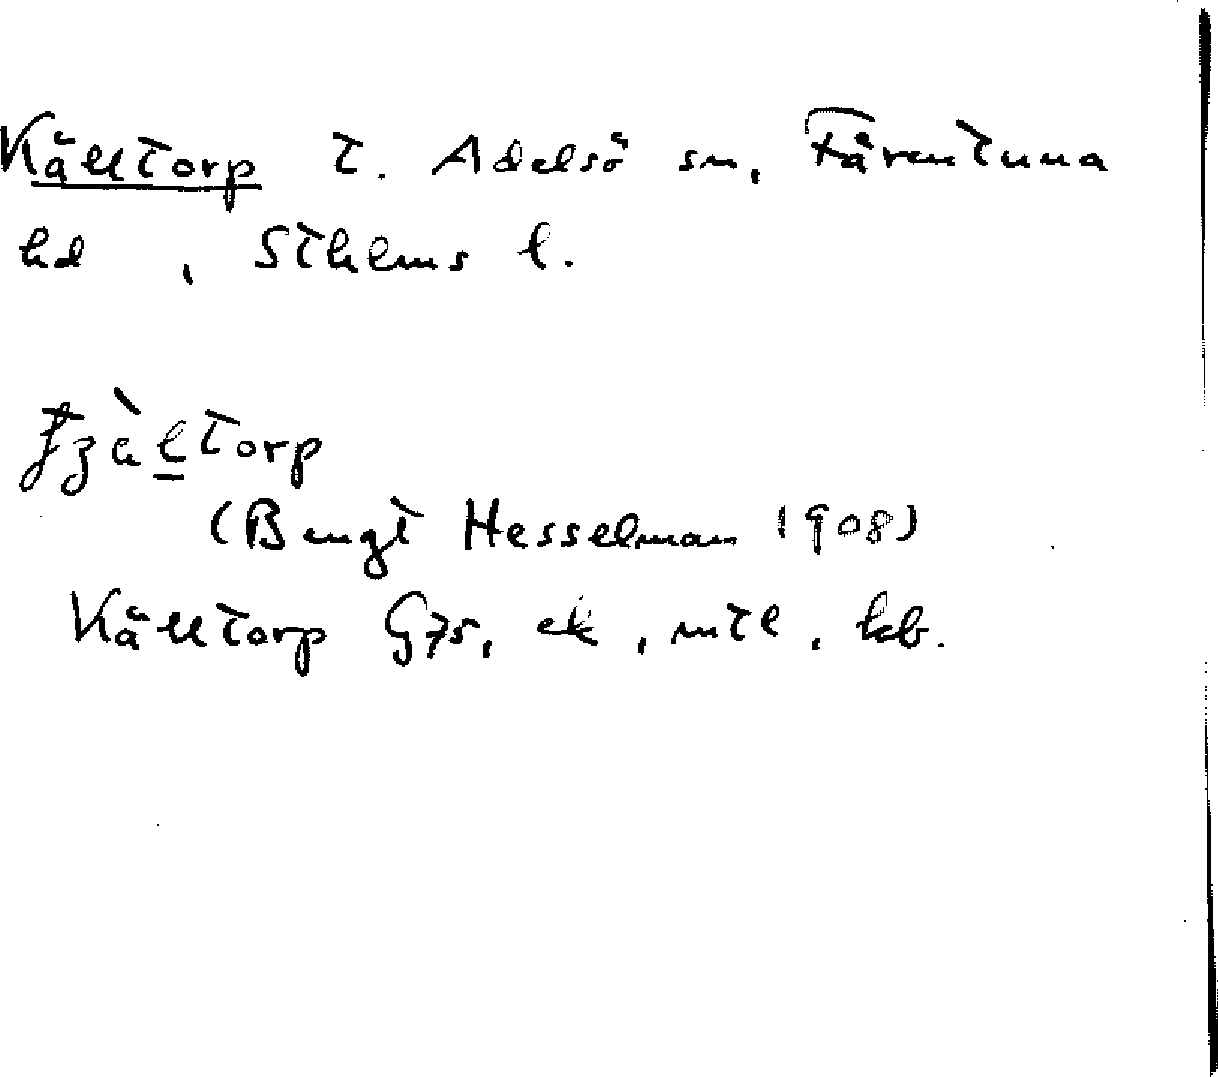 Källtorp t. Adelsö sn, Färentuna
hd , Sthlms l.
(Bengt Hesselman 1908)
Källtorp G75, ek , mtl , kb.